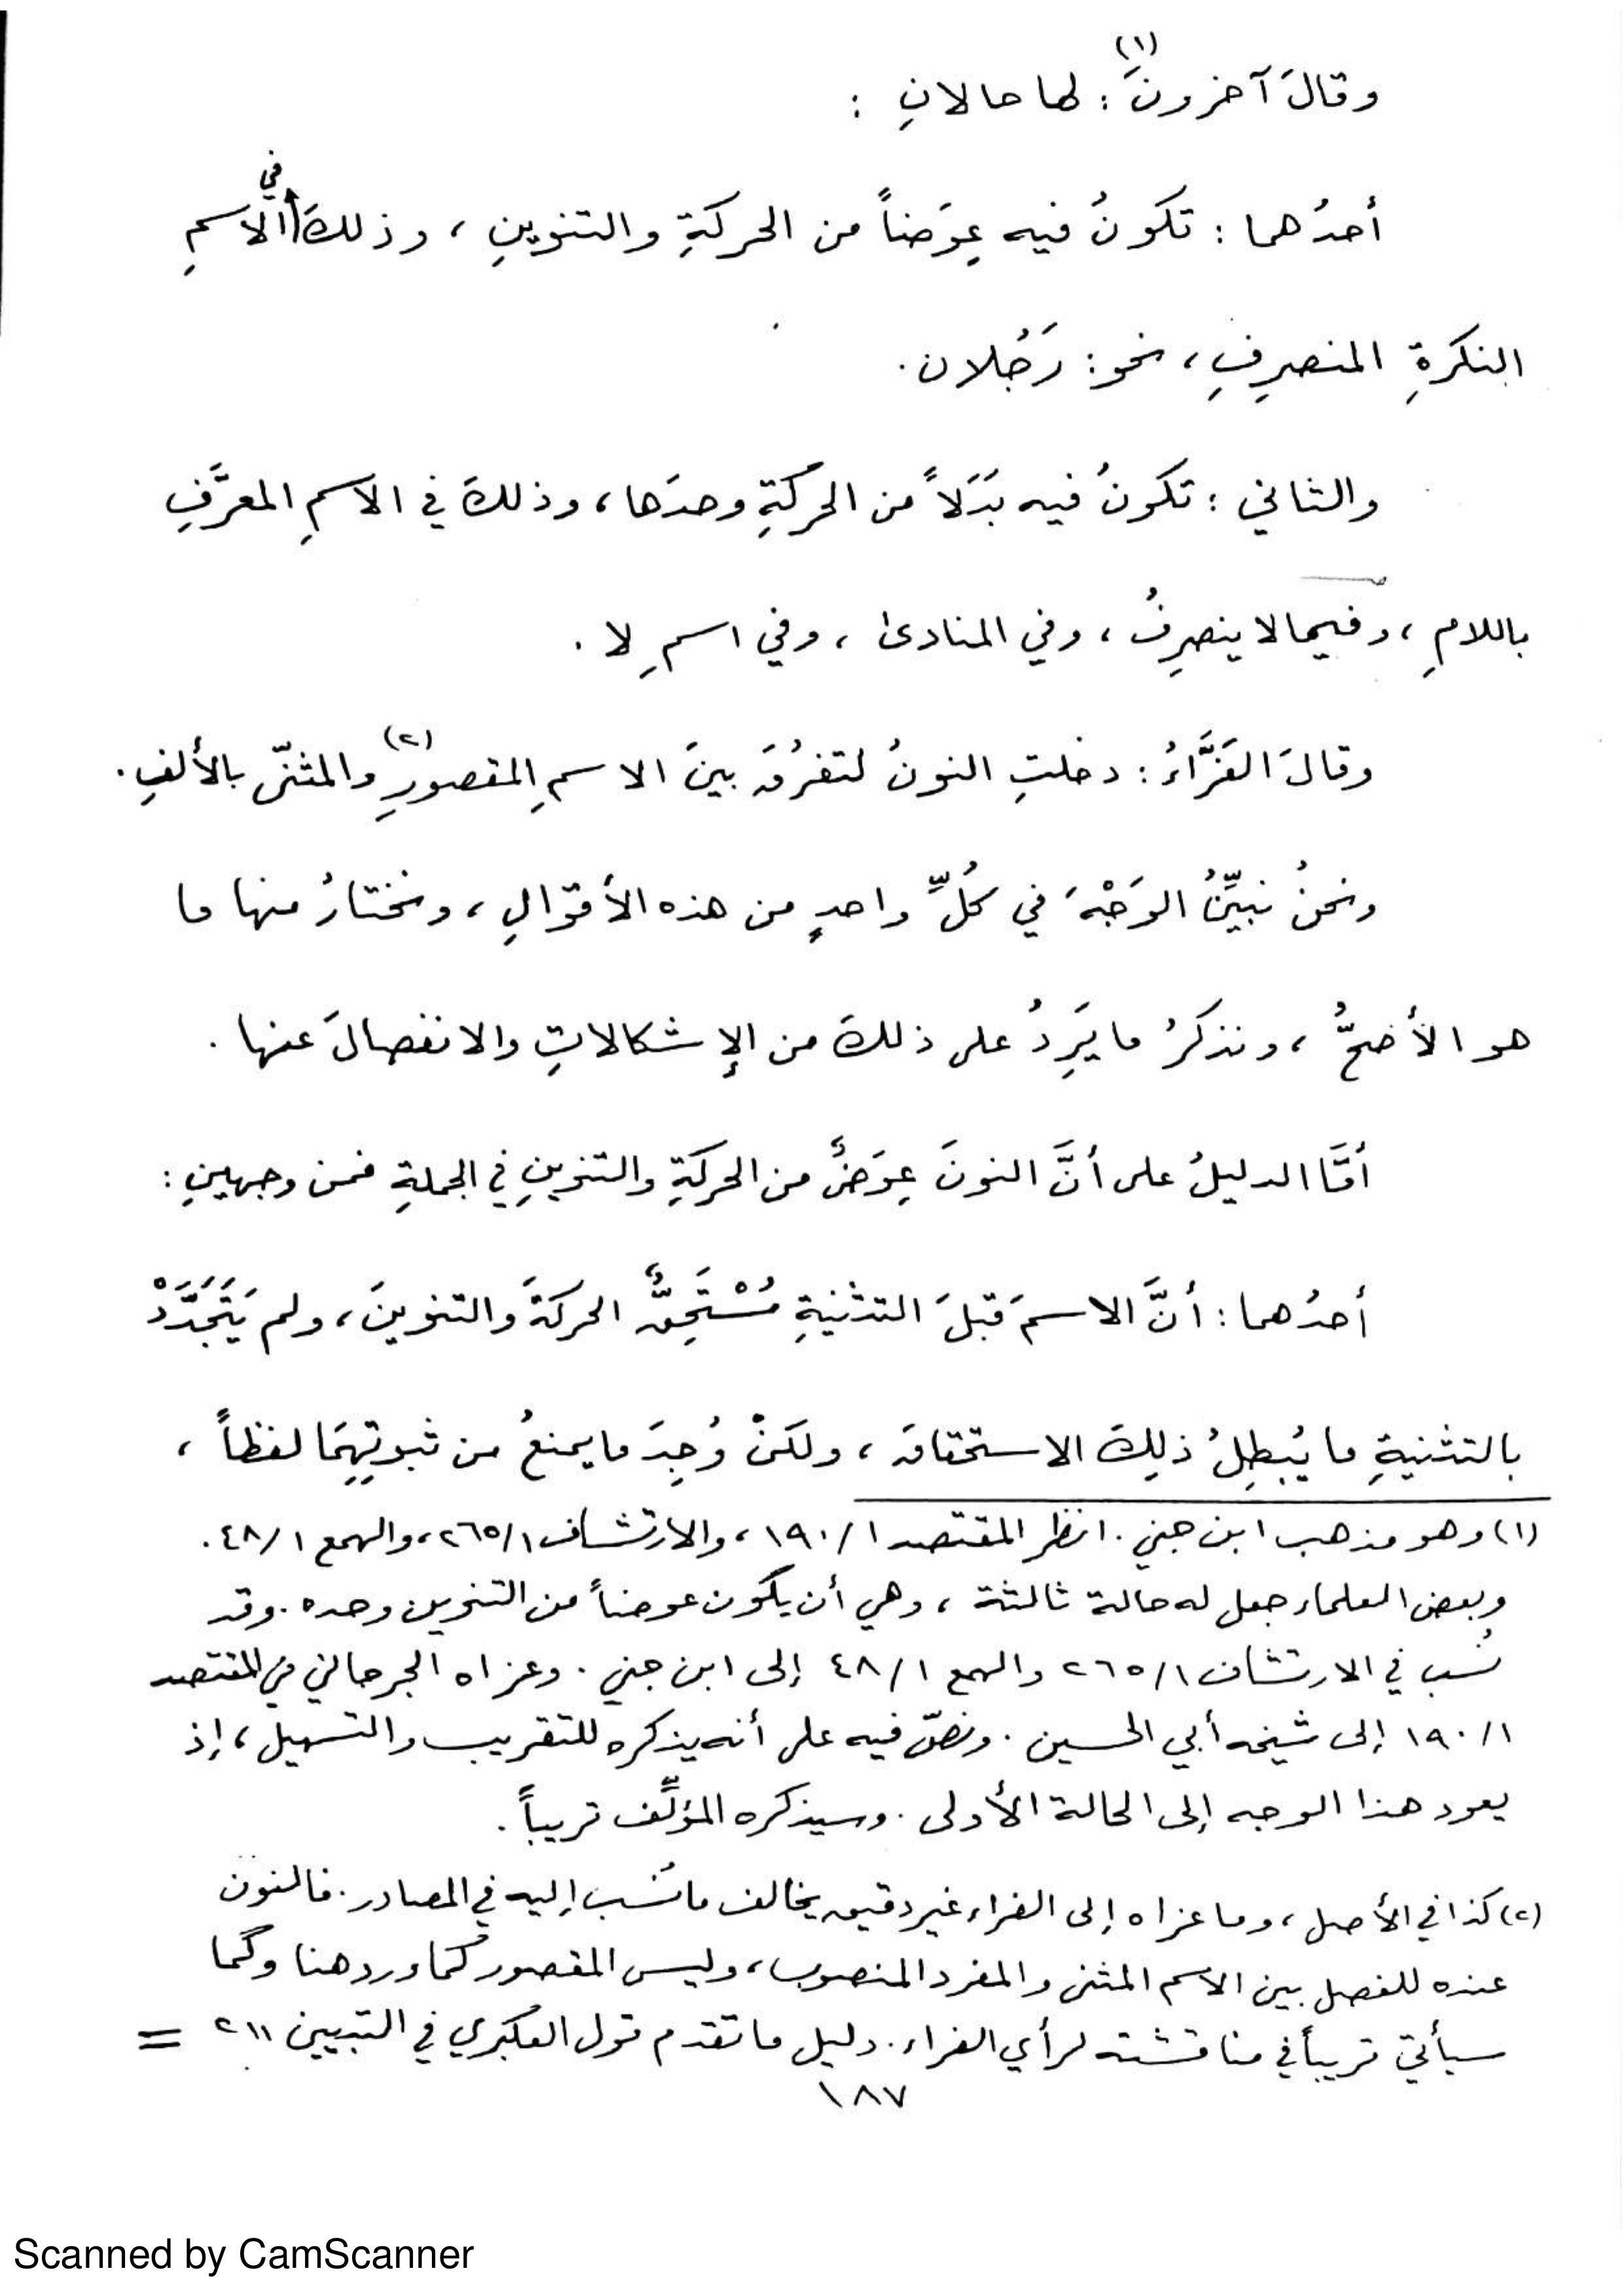 وقالَ آخرونَ(١) : لها حالانِ :
أحدُهما : تكونُ فيه عِوَضاً من الحركةِ والتنوينِ ، وذلكَ في الاسمِ
النكرةِ المنصرِفِ ، نحو : رَجُلان .
والثاني : تكونُ فيه بَدَلاً من الحركةِ وحدَها ، وذلكَ في الاسمِ المعرَّفِ
باللامِ ، وفيما لا ينصرِفُ ، وفي المنادى ، وفي اسمِ لا .
وقالَ الفَرَّاءُ : دخلتِ النونُ لتفرُقَ بينَ الاسمِ المقصورِ(٢) والمثنّى بالألفِ .
ونحنُ نبيِّنُ الوَجْهَ في كُلِّ واحدٍ من هذه الأقوالِ ، ونختارُ منها ما
هو الأصحُّ ، ونذكرُ ما يَرِدُ على ذلكَ من الإشكالاتِ والانفصالَ عنها .
أمَّا الدليلُ على أنَّ النونَ عِوَضٌ من الحركةِ والتنوينِ في الجملةِ فمن وجهينِ :
أحدُهما : أنَّ الاسمَ قبلَ التثنيةِ مُسْتَحِقٌّ الحركةَ والتنوينَ ، ولم يَتَجَدَّدْ
بالتثنيةِ ما يُبطِلُ ذلِكَ الاستحقاقَ ، ولكنْ وُجِدَ ما يمنعُ من ثبوتِهِمَا لفظاً ،
(١) وهو مذهب ابن جني . انظر المقتصد ١/١٩٠ ، والارتشاف ١/٢٦٥ ، والهمع ١/٤٨ .
وبعض العلماء جعل له حالة ثالثة ، وهي أن يكون عوضاً من التنوين وحده . وقد
نُسب في الارتشاف ١/٢٦٥ والهمع ١/٤٨ إلى ابن جني . وعزاه الجرجاني في المقتصد
١/١٩٠ إلى شيخه أبي الحسين . ونصّ فيه على أنه يذكره للتقريب والتسهيل ، إذ
يعود هذا الوجه إلى الحالة الأولى . وسيذكره المؤلِّف قريباً .
(٢) كذا في الأصل ، وما عزاه إلى الفراء غير دقيق يخالف ما نُسب إليه في المصادر . فالنون
عنده للفصل بين الاسم المثنى والمفرد المنصوب ، وليس المقصور كما ورد هنا وكما
سيأتي قريباً في مناقشته لرأي الفراء . دليل ما تقدم قول العكبري في التبيين ٢١١ =
١٨٧
Scanned by CamScanner